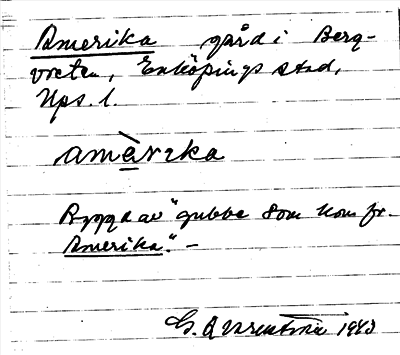 Amerika gård i Berg-
vreten, Enköpings stad,
Ups. l.
amèrika
Byggd av "gubbe som kom fr.
Amerika". —
G. 1943